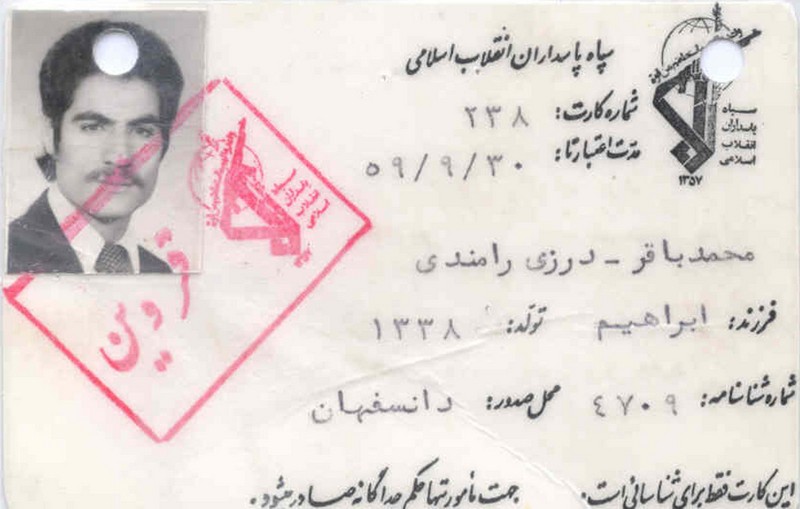 سپاه پاسداران انقلاب اسلامی
سپاه
پاسداران
انقلاب
اسلامی
۱۳۵۷
شماره کارت: ۲۳۸
مدت اعتبار تا: ۵۹/۹/۳۰
محمدباقر - درزی رامندی
فرزند: ابراهیم تولد: ۱۳۳۸
شماره شناسنامه: ٤۷۰۹ محل صدور: دانسفهان
این کارت فقط برای شناسائی است. جهت مأموریتها حکم جداگانه صادر میشود.
قزوین